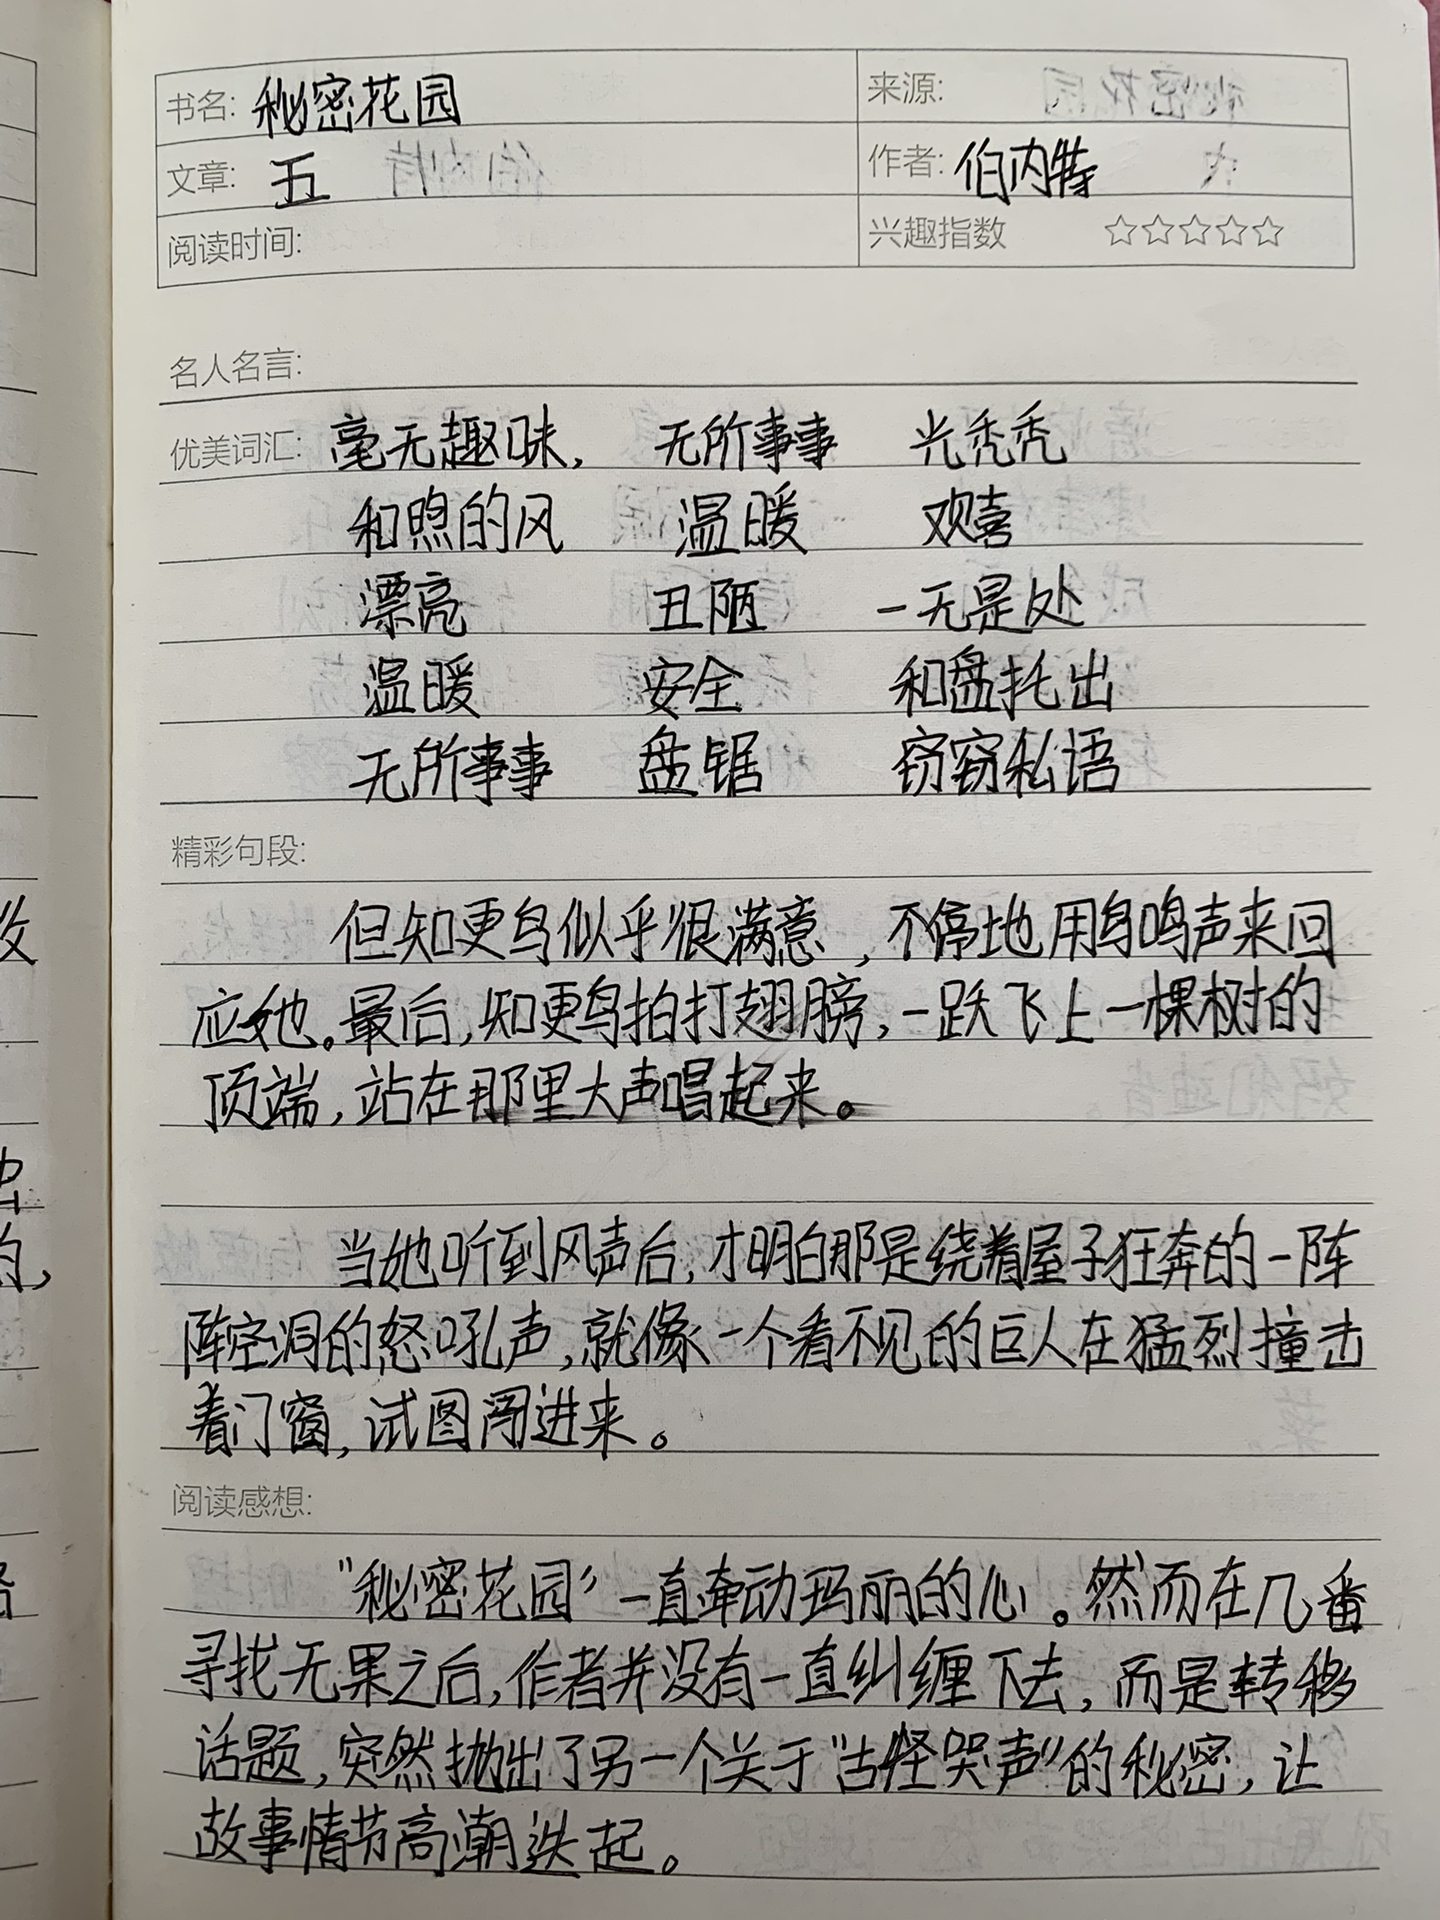 书名: 秘密花园 来源:
文章: 五 作者: 伯内特
阅读时间: 兴趣指数 ☆☆☆☆☆
名人名言:
优美词汇: 毫无趣味, 无所事事 光秃秃
和煦的风 温暖 欢喜
漂亮 丑陋 一无是处
温暖 安全 和盘托出
无所事事 盘锯 窃窃私语
精彩句段:
但知更鸟似乎很满意,不停地用鸟鸣声来回
应她。最后,知更鸟拍打翅膀,一跃飞上一棵树的
顶端,站在那里大声唱起来。
当她听到风声后,才明白那是绕着屋子狂奔的一阵
阵空洞的怒吼声,就像一个看不见的巨人在猛烈撞击
着门窗,试图闯进来。
阅读感想:
"秘密花园"一直牵动玛丽的心。然而在几番
寻找无果之后,作者并没有一直纠缠下去,而是转移
话题,突然抛出了另一个关于"古怪哭声"的秘密,让
故事情节高潮迭起。